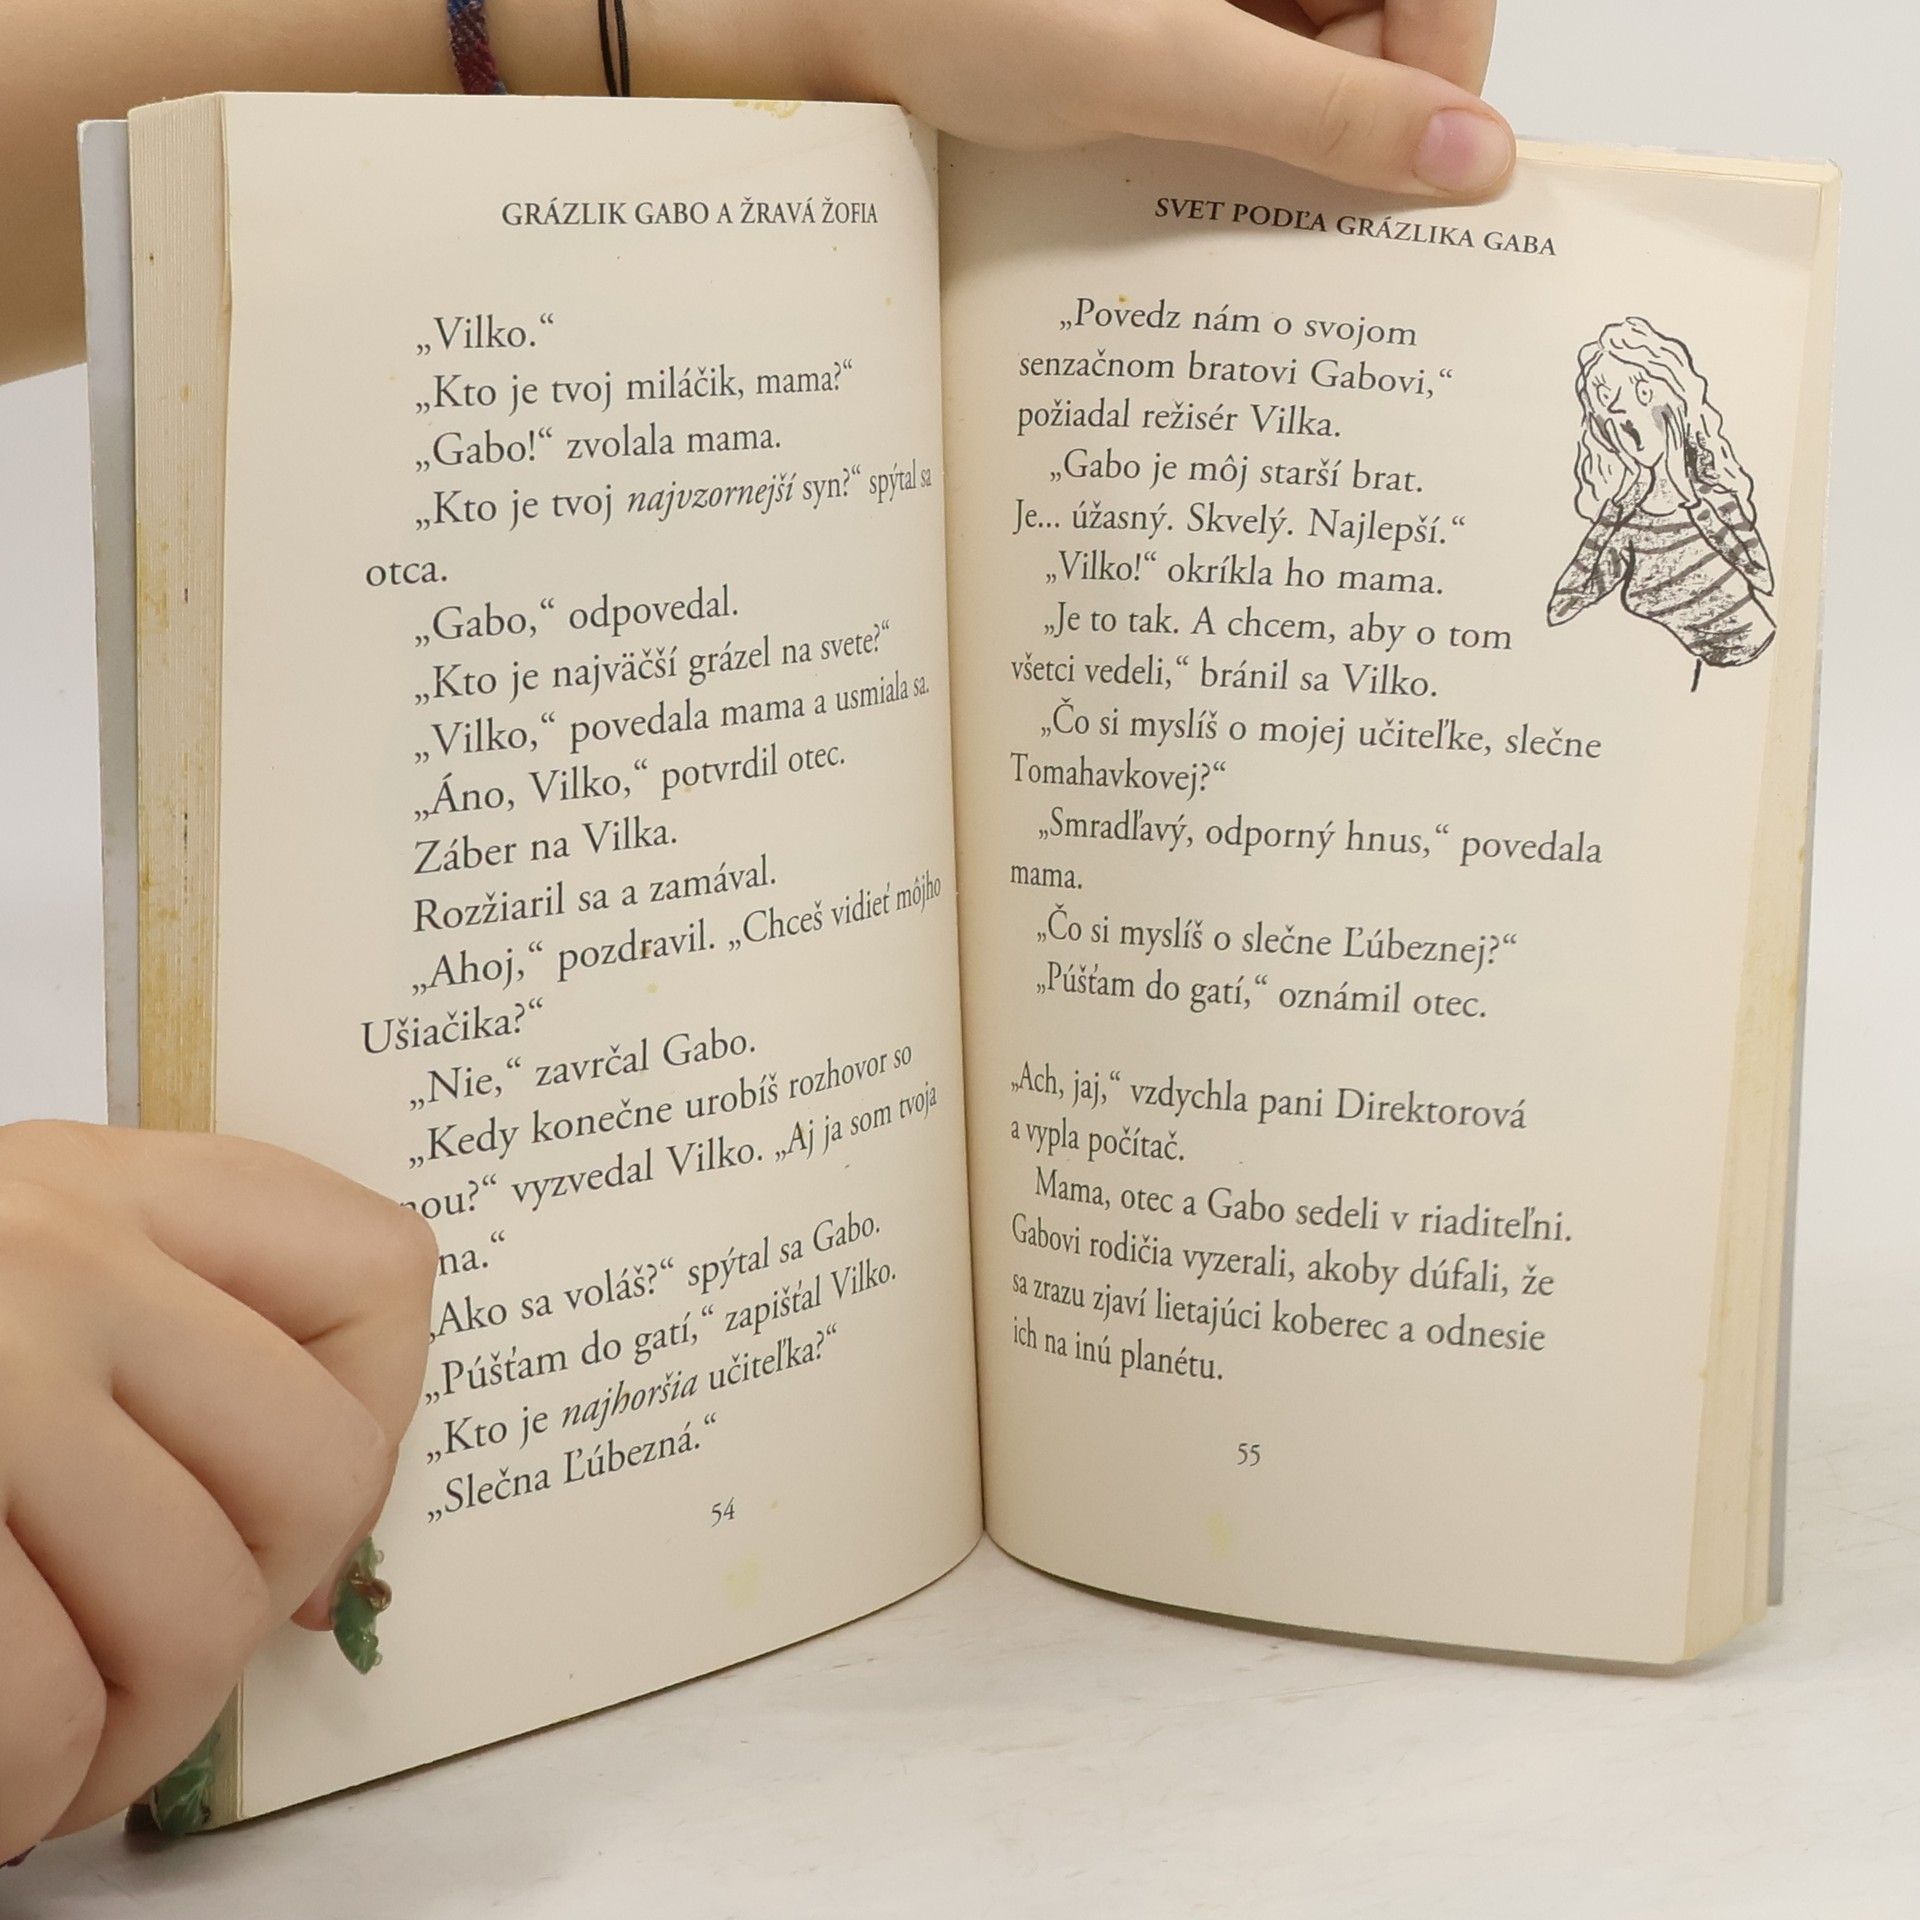 GRÁZLIK GABO A ŽRAVÁ ŽOFIA
„Vilko.“
„Kto je tvoj miláčik, mama?“
„Gabo!“ zvolala mama.
„Kto je tvoj najvzornejší syn?“ spýtal sa
otca.
„Gabo,“ odpovedal.
„Kto je najväčší grázel na svete?“
„Vilko,“ povedala mama a usmiala sa.
„Áno, Vilko,“ potvrdil otec.
Záber na Vilka.
Rozžiaril sa a zamával.
„Ahoj,“ pozdravil. „Chceš vidieť môjho
Ušiačika?“
„Nie,“ zavrčal Gabo.
„Kedy konečne urobíš rozhovor so
nou?“ vyzvedal Vilko. „Aj ja som tvoja
na.“
„Ako sa voláš?“ spýtal sa Gabo.
„Púšťam do gatí,“ zapišťal Vilko.
„Kto je najhoršia učiteľka?“
„Slečna Ľúbezná.“
54
SVET PODĽA GRÁZLIKA GABA
„Povedz nám o svojom
senzačnom bratovi Gabovi,“
požiadal režisér Vilka.
„Gabo je môj starší brat.
Je... úžasný. Skvelý. Najlepší.“
„Vilko!“ okríkla ho mama.
„Je to tak. A chcem, aby o tom
všetci vedeli,“ bránil sa Vilko.
„Čo si myslíš o mojej učiteľke, slečne
Tomahavkovej?“
„Smradľavý, odporný hnus,“ povedala
mama.
„Čo si myslíš o slečne Ľúbeznej?“
„Púšťam do gatí,“ oznámil otec.
„Ach, jaj,“ vzdychla pani Direktorová
a vypla počítač.
Mama, otec a Gabo sedeli v riaditeľni.
Gabovi rodičia vyzerali, akoby dúfali, že
sa zrazu zjaví lietajúci koberec a odnesie
ich na inú planétu.
55